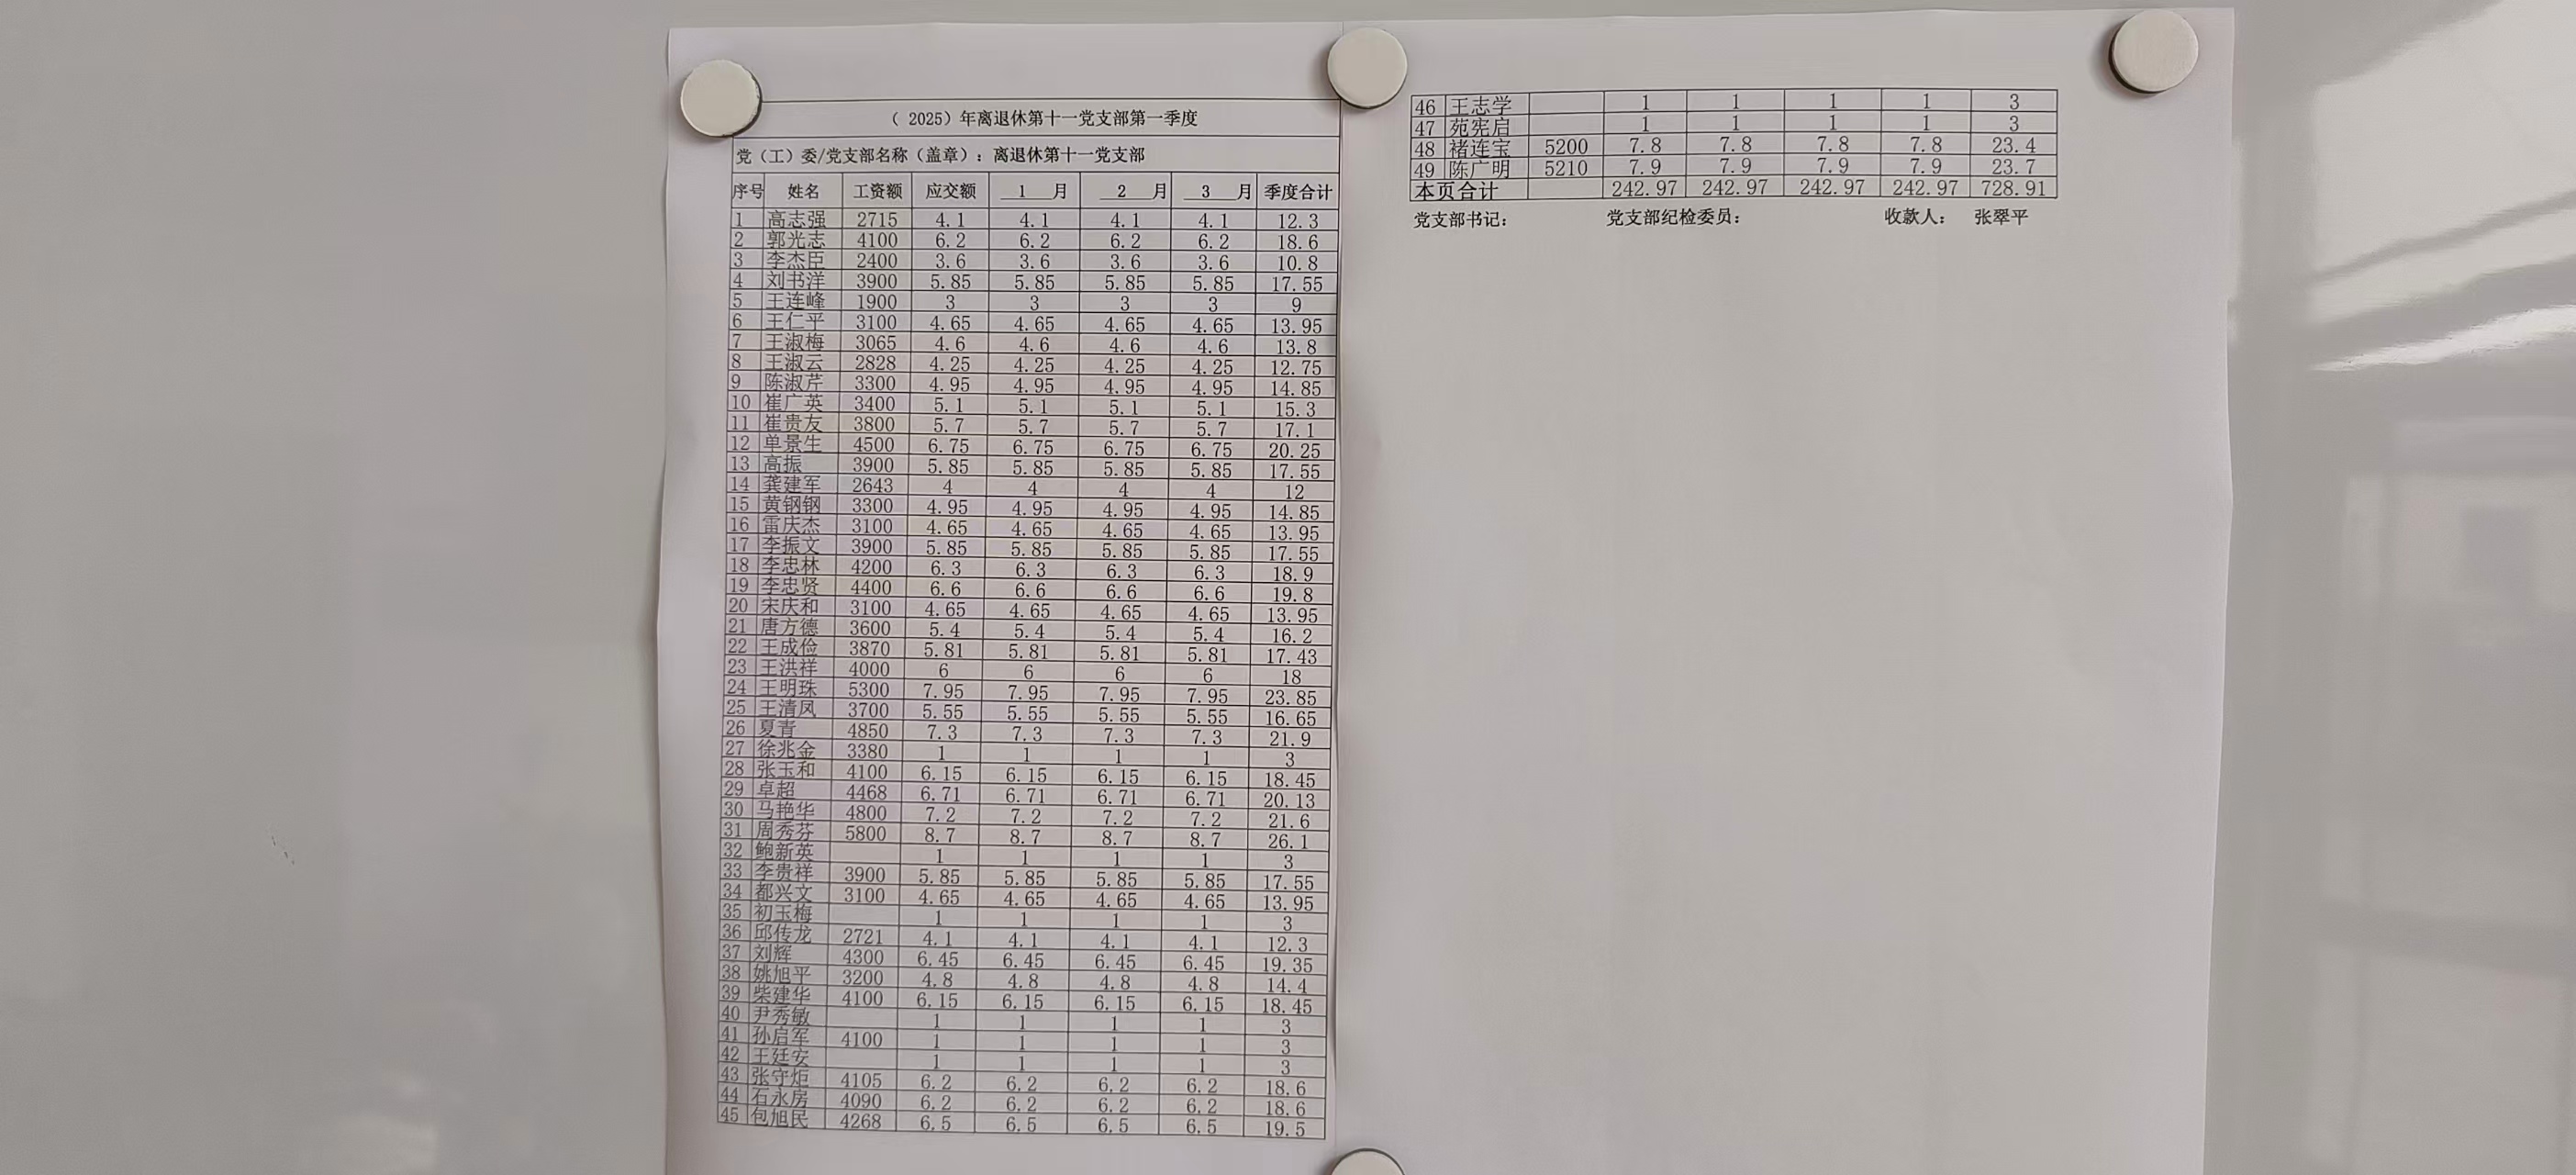 （ 2025）年离退休第十一党支部第一季度
党（工）委/党支部名称（盖章）：离退休第十一党支部
序号 姓名 工资额 应交额 1 月 2 月 3 月 季度合计
1 高志强 2715 4.1 4.1 4.1 4.1 12.3
2 郭光志 4100 6.2 6.2 6.2 6.2 18.6
3 李杰臣 2400 3.6 3.6 3.6 3.6 10.8
4 刘书洋 3900 5.85 5.85 5.85 5.85 17.55
5 王连峰 1900 3 3 3 3 9
6 王仁平 3100 4.65 4.65 4.65 4.65 13.95
7 王淑梅 3065 4.6 4.6 4.6 4.6 13.8
8 王淑云 2828 4.25 4.25 4.25 4.25 12.75
9 陈淑芹 3300 4.95 4.95 4.95 4.95 14.85
10 崔广英 3400 5.1 5.1 5.1 5.1 15.3
11 崔贵友 3800 5.7 5.7 5.7 5.7 17.1
12 单景生 4500 6.75 6.75 6.75 6.75 20.25
13 高振 3900 5.85 5.85 5.85 5.85 17.55
14 龚建军 2643 4 4 4 4 12
15 黄钢钢 3300 4.95 4.95 4.95 4.95 14.85
16 雷庆杰 3100 4.65 4.65 4.65 4.65 13.95
17 李振文 3900 5.85 5.85 5.85 5.85 17.55
18 李忠林 4200 6.3 6.3 6.3 6.3 18.9
19 李忠贤 4400 6.6 6.6 6.6 6.6 19.8
20 宋庆和 3100 4.65 4.65 4.65 4.65 13.95
21 唐方德 3600 5.4 5.4 5.4 5.4 16.2
22 王成俭 3870 5.81 5.81 5.81 5.81 17.43
23 王洪祥 4000 6 6 6 6 18
24 王明珠 5300 7.95 7.95 7.95 7.95 23.85
25 王清凤 3700 5.55 5.55 5.55 5.55 16.65
26 夏青 4850 7.3 7.3 7.3 7.3 21.9
27 徐兆金 3380 1 1 1 1 3
28 张玉和 4100 6.15 6.15 6.15 6.15 18.45
29 卓超 4468 6.71 6.71 6.71 6.71 20.13
30 马艳华 4800 7.2 7.2 7.2 7.2 21.6
31 周秀芬 5800 8.7 8.7 8.7 8.7 26.1
32 鲍新英 1 1 1 1 3
33 李贵祥 3900 5.85 5.85 5.85 5.85 17.55
34 都兴文 3100 4.65 4.65 4.65 4.65 13.95
35 初玉梅 1 1 1 1 3
36 邱传龙 2721 4.1 4.1 4.1 4.1 12.3
37 刘辉 4300 6.45 6.45 6.45 6.45 19.35
38 姚旭平 3200 4.8 4.8 4.8 4.8 14.4
39 柴建华 4100 6.15 6.15 6.15 6.15 18.45
40 尹秀敏 1 1 1 1 3
41 孙启军 4100 1 1 1 1 3
42 王廷安 1 1 1 1 3
43 张守炬 4105 6.2 6.2 6.2 6.2 18.6
44 石永房 4090 6.2 6.2 6.2 6.2 18.6
45 包旭民 4268 6.5 6.5 6.5 6.5 19.5
46 王志学 1 1 1 1 3
47 苑宪启 1 1 1 1 3
48 褚连宝 5200 7.8 7.8 7.8 7.8 23.4
49 陈广明 5210 7.9 7.9 7.9 7.9 23.7
本页合计 242.97 242.97 242.97 242.97 728.91
党支部书记： 党支部纪检委员： 收款人： 张翠平